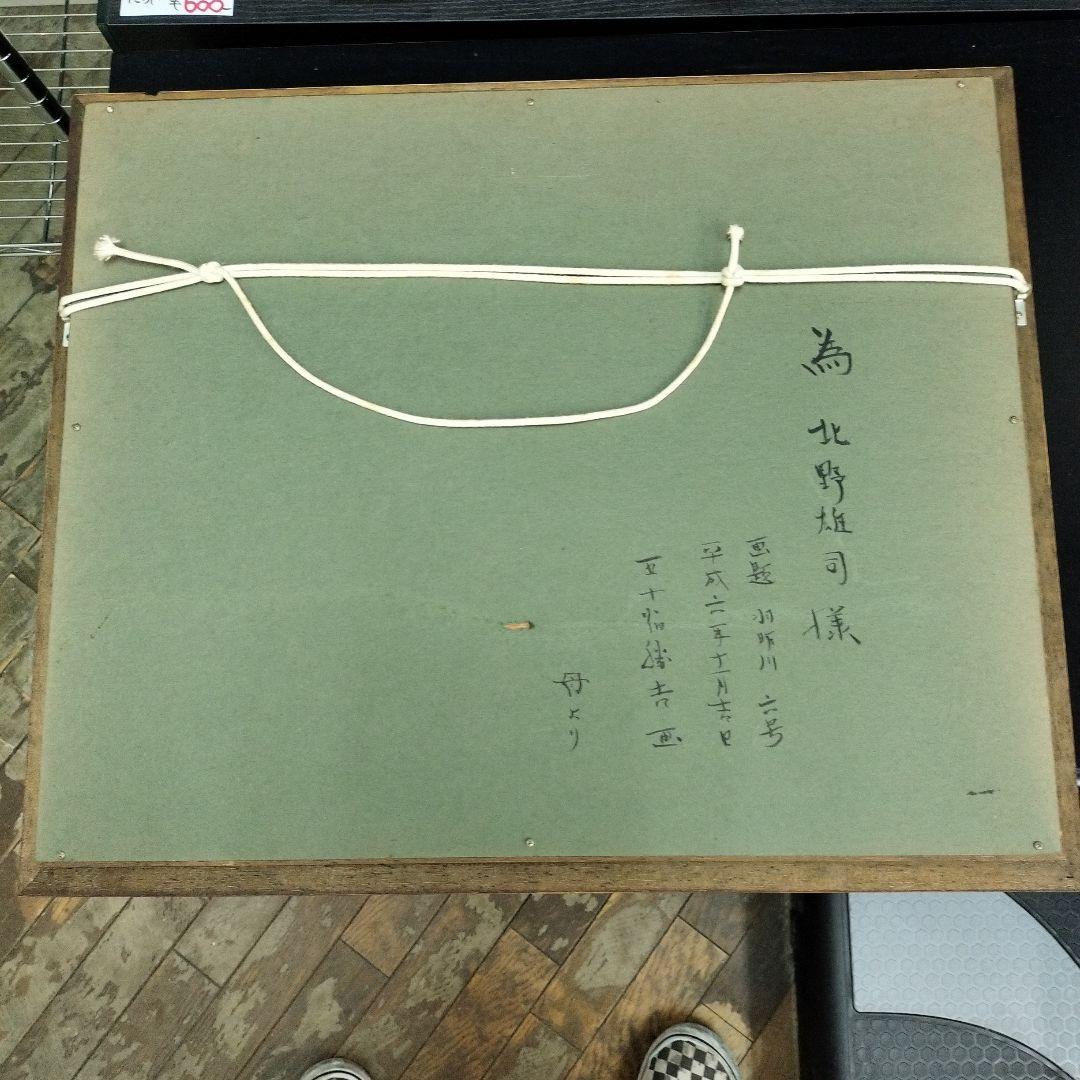 ¥600-
為 北野雄司 様
画題 羽咋川 六号
平成六年十一月吉日
五十嵐勝吉 画
母より